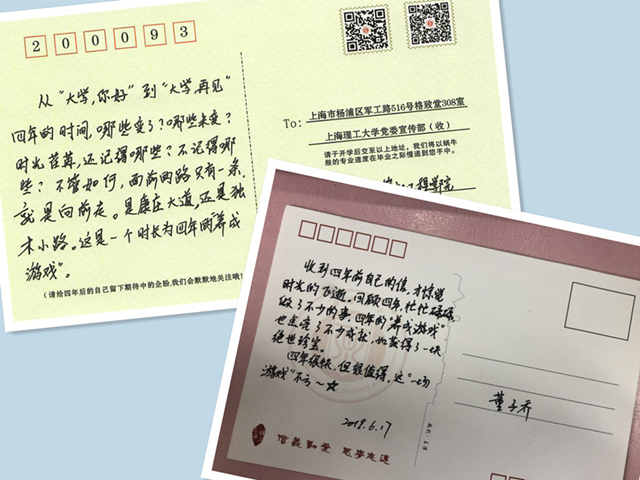 200093
从“大学,你好”到“大学,再见”
四年的时间,哪些变了?哪些未变?
时光荏苒,还记得哪些?不记得哪
些?不管如何,面前的路只有一条,
就是向前走。是康庄大道,还是独
木小路。这是一个时长为四年的“养成
游戏”。
(请给四年后的自己留下期待中的企盼,我们会默默地关注哦!
To:
上海市杨浦区军工路516号格致堂308室
上海理工大学党委宣传部(收)
请于开学后交至以上地址,我们将以蜗牛
般的专业速度在毕业之际慢递到您手中。
收到四年前自己的信,才惊觉
时光的飞逝。回顾四年,忙忙碌碌
做了不少的事,四年的“养成游戏”
也走完了不少成就,也获得了一块
绝世珍宝。
四年很快,但很值得,这“一场
游戏”不亏~☆
2018.6.17
信义勤爱 思学志远
董子乔